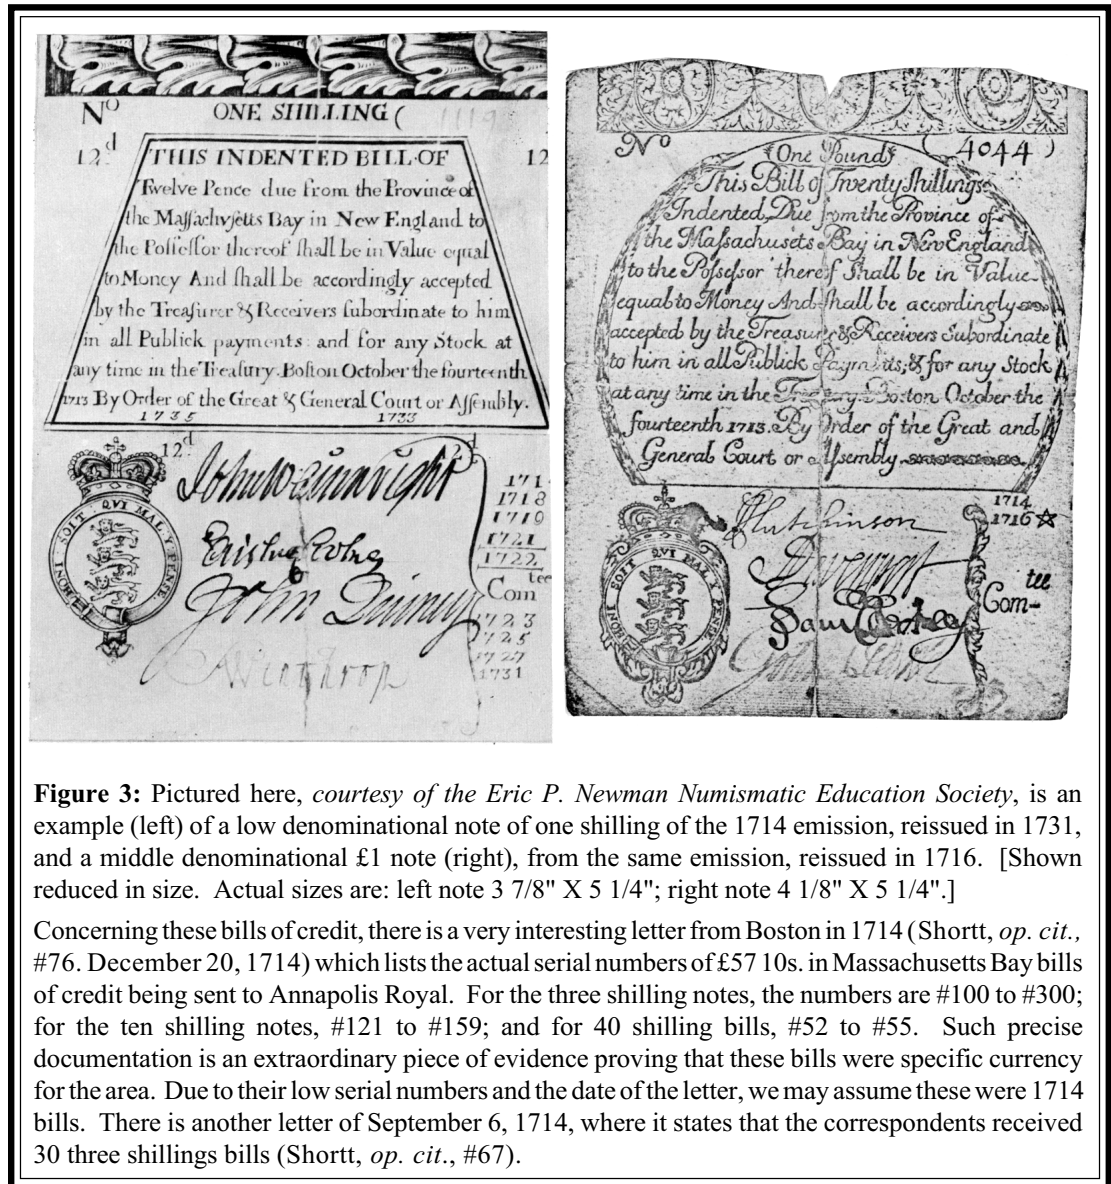 Nº ONE SHILLING (
12.d 12
THIS INDENTED BILL OF
Twelve Pence due from the Province of
the Maſſachvſetts Bay in New England to
the Poſſeſſor thereof ſhall be in Value equal
to Money And ſhall be accordingly accepted
by the Treaſurer & Receivers ſubordinate to him
in all Publick payments and for any Stock at
any time in the Treaſury. Boſton October the fourteenth
1713 By Order of the Great & General Court or Aſſembly.
1735 1733
12d
John Wainwright
171
1718
1719
1721
1722
tee
Com
John Quincy
1723
1725
1727
1731
Winthrop
HONI SOIT QVI MAL Y PENSE
Nº ( 4044 )
One Pound
This Bill of Twenty ſhillings
Indented, Due from the Province of
the Maſsachusets Bay in New England
to the Poſseſsor thereof Shall be in Value
equal to Money And ſhall be accordingly
accepted by the Treasurer & Receivers Subordinate
to him in all Publick Payments; & for any Stock
at any time in the Treasury. Boston October the
fourteenth 1713. By Order of the Great and
General Court or Aſsembly
1714
1716
Hutchinson
tee
Com-
HONI SOIT QVI MAL Y PENSE
Figure 3: Pictured here, courtesy of the Eric P. Newman Numismatic Education Society, is an
example (left) of a low denominational note of one shilling of the 1714 emission, reissued in 1731,
and a middle denominational £1 note (right), from the same emission, reissued in 1716. [Shown
reduced in size. Actual sizes are: left note 3 7/8" X 5 1/4"; right note 4 1/8" X 5 1/4".]
Concerning these bills of credit, there is a very interesting letter from Boston in 1714 (Shortt, op. cit.,
#76. December 20, 1714) which lists the actual serial numbers of £57 10s. in Massachusetts Bay bills
of credit being sent to Annapolis Royal. For the three shilling notes, the numbers are #100 to #300;
for the ten shilling notes, #121 to #159; and for 40 shilling bills, #52 to #55. Such precise
documentation is an extraordinary piece of evidence proving that these bills were specific currency
for the area. Due to their low serial numbers and the date of the letter, we may assume these were 1714
bills. There is another letter of September 6, 1714, where it states that the correspondents received
30 three shillings bills (Shortt, op. cit., #67).